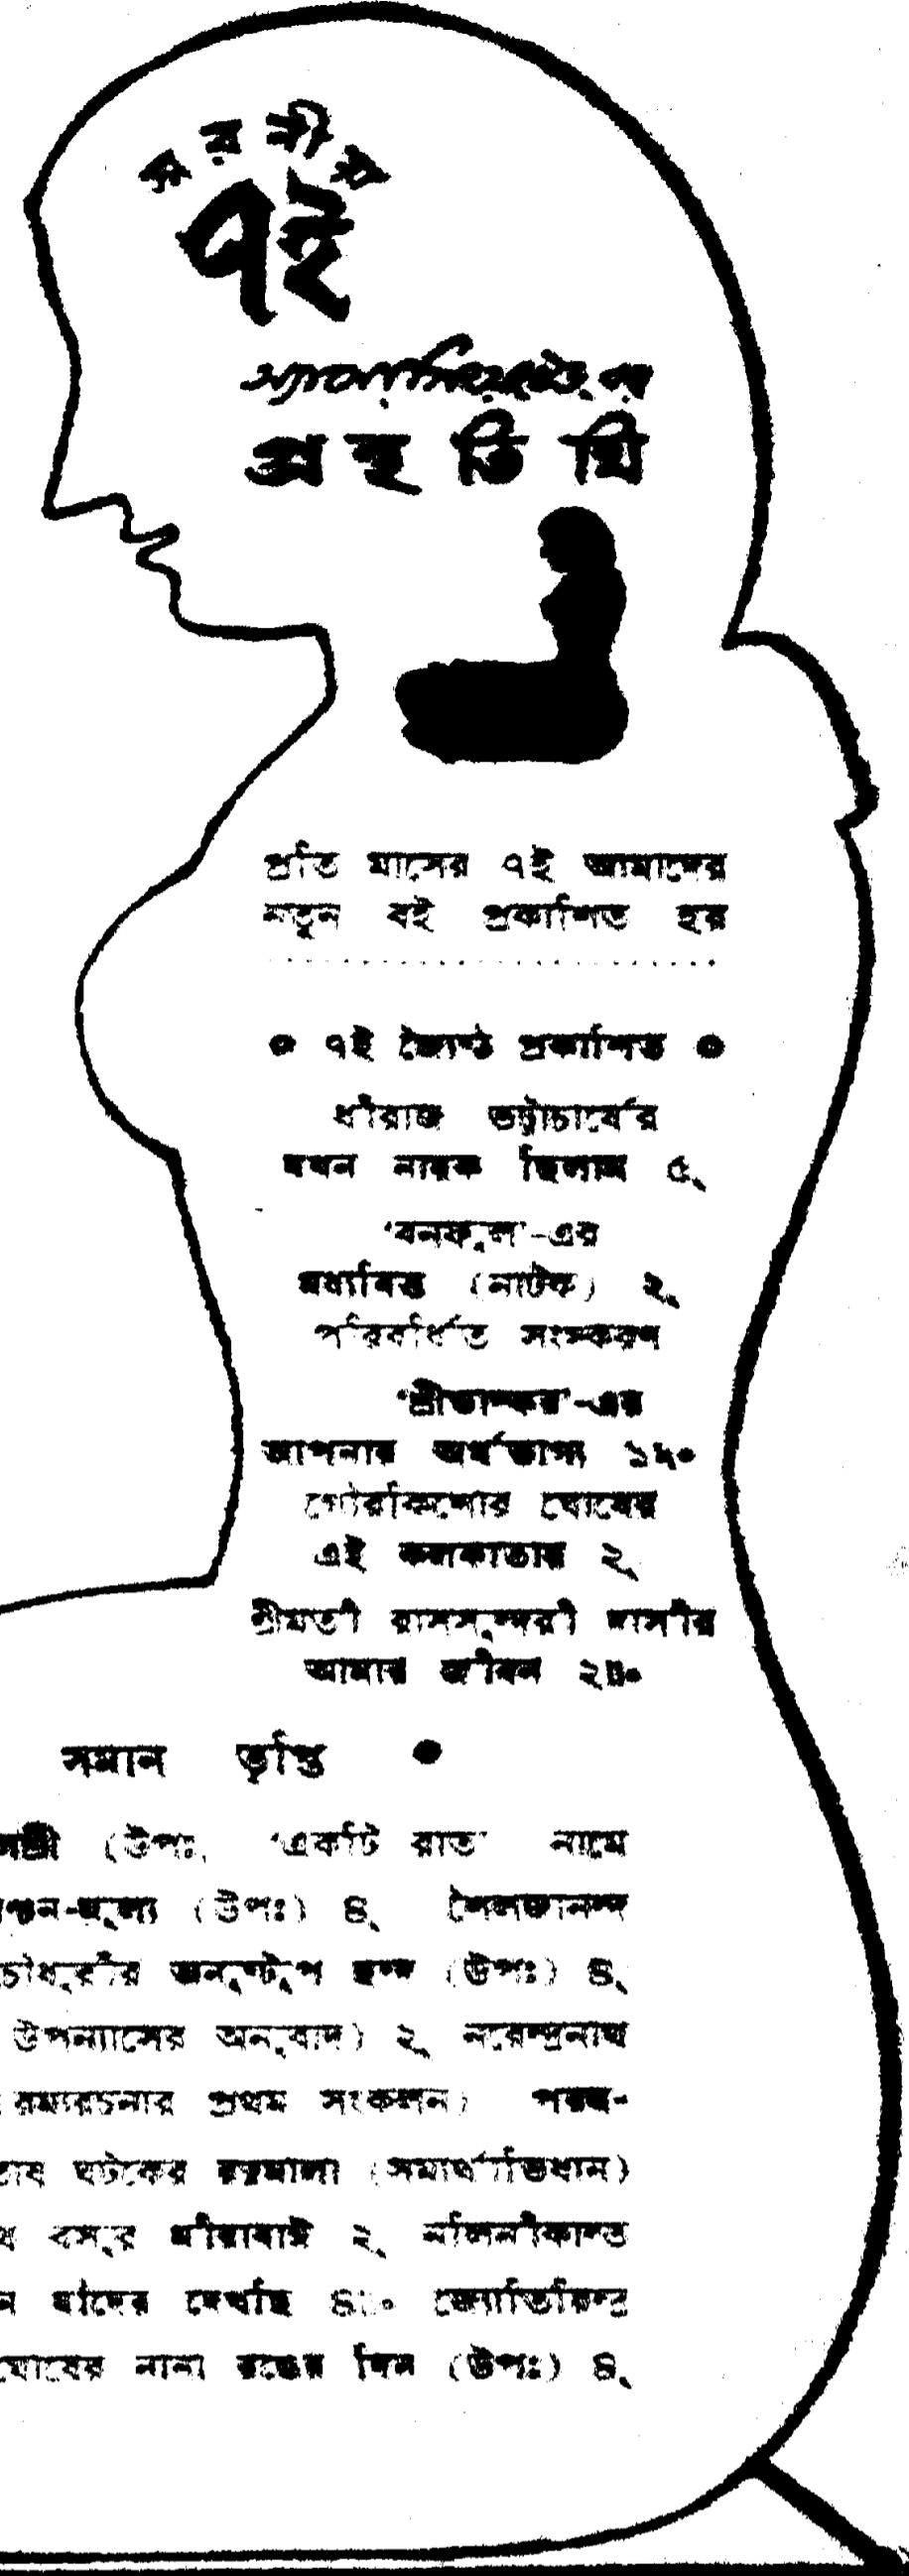 স্মরণীয়
৭ই
অ্যাসোসিয়েটেড-এর
গ্রন্থতিথি
প্রতি মাসের ৭ই আমাদের
নতুন বই প্রকাশিত হয়
৭ই জ্যৈষ্ঠ প্রকাশিত
ধীরাজ ভট্টাচার্যের
যখন নায়ক ছিলাম ৫৲
‘বনফুল’-এর
মধ্যবিত্ত (নাটক) ২৲
পরিবর্ধিত সংস্করণ
‘শ্রীভাস্কর’-এর
আপনার অর্থভাগ্য
গৌরকিশোর ঘোষের
এই কলকাতায় ২৲
শ্রীমতী রাসসুন্দরী দাসীর
আমার জীবন ২॥০
সমান তৃপ্তি
(উপঃ) ‘একটি রাত’ নামে
(উপঃ) ৪৲ শৈলজানন্দ
চৌধুরীর অনুষ্টুপ ছন্দ (উপঃ) ৪৲
উপন্যাসের অনুবাদ) ২৲ নরেন্দ্রনাথ
রম্যরচনার প্রথম সংকলন)
ঘটকের রত্নমালা (সমার্থাভিধান)
বসুর মীরাবাঈ ২৲ নলিনীকান্ত
যাঁদের দেখেছি জ্যোতিরিন্দ্র
ঘোষের নানা রঙের দিন (উপঃ) ৪৲